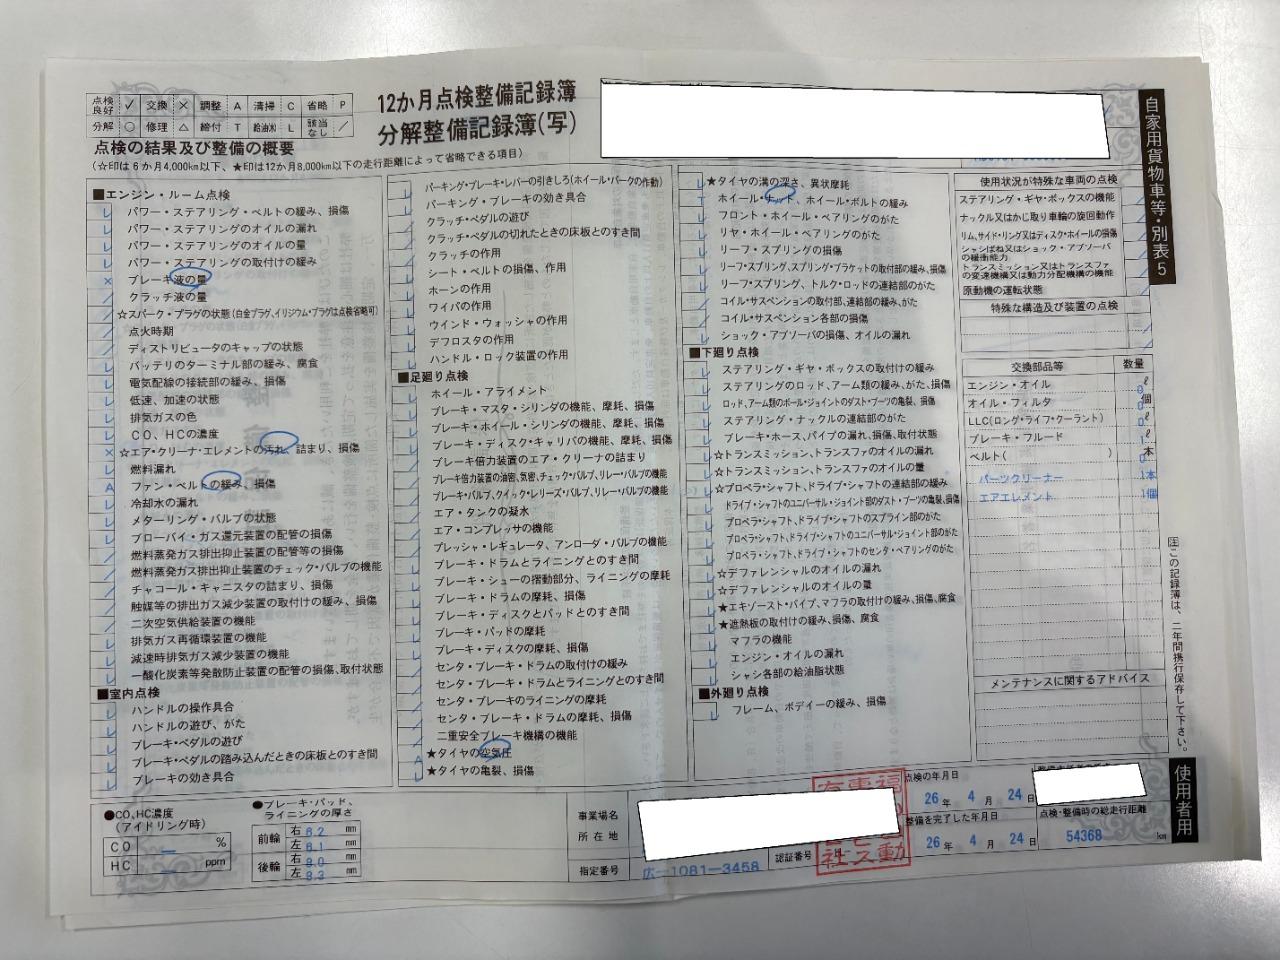 点検良好 ✓ 交換 × 調整 A 清掃 C 省略 P
分解 ○ 修理 △ 締付 T 給油(水) L 該当なし ／
12か月点検整備記録簿
分解整備記録簿(写)
点検の結果及び整備の概要
(☆印は6か月4,000km以下、★印は12か月8,000km以下の走行距離によって省略できる項目)
自家用貨物車等・別表5
■エンジン・ルーム点検
パワー・ステアリング・ベルトの緩み、損傷
パワー・ステアリングのオイルの漏れ
パワー・ステアリングのオイルの量
パワー・ステアリングの取付けの緩み
× ブレーキ液の量
クラッチ液の量
☆スパーク・プラグの状態(白金プラグ、イリジウム・プラグは点検省略可)
点火時期
ディストリビュータのキャップの状態
バッテリのターミナル部の緩み、腐食
電気配線の接続部の緩み、損傷
低速、加速の状態
排気ガスの色
CO、HCの濃度
× ☆エア・クリーナ・エレメントの汚れ、詰まり、損傷
燃料漏れ
A ファン・ベルトの緩み、損傷
冷却水の漏れ
メターリング・バルブの状態
ブローバイ・ガス還元装置の配管の損傷
燃料蒸発ガス排出抑止装置の配管等の損傷
燃料蒸発ガス排出抑止装置のチェック・バルブの機能
チャコール・キャニスタの詰まり、損傷
触媒等の排出ガス減少装置の取付けの緩み、損傷
二次空気供給装置の機能
排気ガス再循環装置の機能
減速時排気ガス減少装置の機能
一酸化炭素等発散防止装置の配管の損傷、取付状態
■室内点検
ハンドルの操作具合
ハンドルの遊び、がた
ブレーキ・ペダルの遊び
ブレーキ・ペダルの踏み込んだときの床板とのすき間
ブレーキの効き具合
パーキング・ブレーキ・レバーの引きしろ(ホイール・パークの作動)
パーキング・ブレーキの効き具合
クラッチ・ペダルの遊び
クラッチ・ペダルの切れたときの床板とのすき間
クラッチの作用
シート・ベルトの損傷、作用
ホーンの作用
ワイパの作用
ウインド・ウォッシャの作用
デフロスタの作用
ハンドル・ロック装置の作用
■足廻り点検
ホイール・アライメント
ブレーキ・マスタ・シリンダの機能、摩耗、損傷
ブレーキ・ホイール・シリンダの機能、摩耗、損傷
ブレーキ・ディスク・キャリパの機能、摩耗、損傷
ブレーキ倍力装置のエア・クリーナの詰まり
ブレーキ倍力装置の油密、気密、チェック・バルブ、リレー・バルブの機能
ブレーキ・バルブ、クイック・レリーズ・バルブ、リレー・バルブの機能
エア・タンクの凝水
エア・コンプレッサの機能
プレッシャ・レギュレータ、アンローダ・バルブの機能
ブレーキ・ドラムとライニングとのすき間
ブレーキ・シューの摺動部分、ライニングの摩耗
ブレーキ・ドラムの摩耗、損傷
ブレーキ・ディスクとパッドとのすき間
ブレーキ・パッドの摩耗
ブレーキ・ディスクの摩耗、損傷
センタ・ブレーキ・ドラムの取付けの緩み
センタ・ブレーキ・ドラムとライニングとのすき間
センタ・ブレーキのライニングの摩耗
センタ・ブレーキ・ドラムの摩耗、損傷
二重安全ブレーキ機構の機能
A ★タイヤの空気圧
★タイヤの亀裂、損傷
★タイヤの溝の深さ、異状摩耗
T ホイール・ナット、ホイール・ボルトの緩み
フロント・ホイール・ベアリングのがた
リヤ・ホイール・ベアリングのがた
リーフ・スプリングの損傷
リーフ・スプリング、スプリング・ブラケットの取付部の緩み、損傷
リーフ・スプリング、トルク・ロッドの連結部のがた
コイル・サスペンションの取付部、連結部の緩み、がた
コイル・サスペンション各部の損傷
ショック・アブソーバの損傷、オイルの漏れ
■下廻り点検
ステアリング・ギヤ・ボックスの取付けの緩み
ステアリングのロッド、アーム類の緩み、がた、損傷
ロッド、アーム類のボール・ジョイントのダスト・ブーツの亀裂、損傷
ステアリング・ナックルの連結部のがた
ブレーキ・ホース、パイプの漏れ、損傷、取付状態
☆トランスミッション、トランスファのオイルの漏れ
☆トランスミッション、トランスファのオイルの量
☆プロペラ・シャフト、ドライブ・シャフトの連結部の緩み
ドライブ・シャフトのユニバーサル・ジョイント部のダスト・ブーツの亀裂、損傷
プロペラ・シャフト、ドライブ・シャフトのスプライン部のがた
プロペラ・シャフト、ドライブ・シャフトのユニバーサル・ジョイント部のがた
プロペラ・シャフト、ドライブ・シャフトのセンタ・ベアリングのがた
☆デファレンシャルのオイルの漏れ
☆デファレンシャルのオイルの量
★エキゾースト・パイプ、マフラの取付けの緩み、損傷、腐食
★遮熱板の取付けの緩み、損傷、腐食
マフラの機能
エンジン・オイルの漏れ
シャシ各部の給油脂状態
■外廻り点検
フレーム、ボデイーの緩み、損傷
使用状況が特殊な車両の点検
ステアリング・ギヤ・ボックスの機能
ナックル又はかじ取り車輪の旋回動作
リム、サイド・リング又はディスク・ホイールの損傷
シャシばね又はショック・アブソーバの緩衝能力
トランスミッション又はトランスファの変速機構又は動力分配機構の機能
原動機の運転状態
特殊な構造及び装置の点検
交換部品等 数量
エンジン・オイル 0 ℓ
オイル・フィルタ 0 個
LLC(ロング・ライフ・クーラント) 0 ℓ
ブレーキ・フルード 1 ℓ
ベルト( ) 0 本
パーツクリーナー 1本
エアエレメント 1個
メンテナンスに関するアドバイス
注 この記録簿は、二年間携行保存して下さい。
使用者用
●CO、HC濃度
(アイドリング時)
CO — %
HC — ppm
●ブレーキ・パッド、ライニングの厚さ
前輪 右 6.2 mm
左 6.1 mm
後輪 右 3.0 mm
左 3.3 mm
事業場名
所在地
指定番号 広-1081-3458
認証番号
点検の年月日
26年 4月 24日
整備を完了した年月日
26年 4月 24日
点検・整備時の総走行距離
54368 km